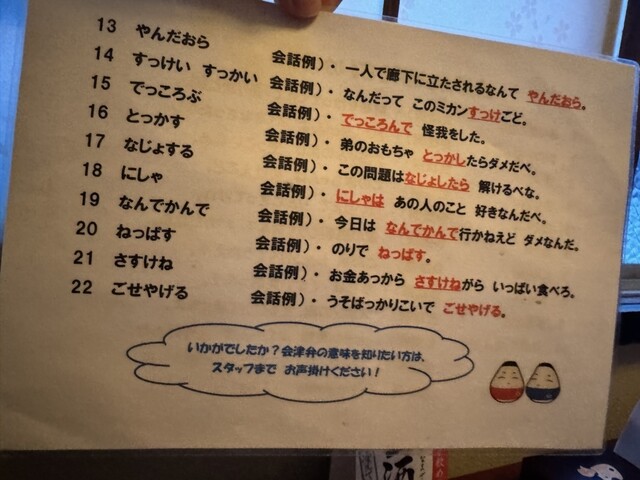 13 やんだおら 会話例)・ 一人で廊下に立たされるなんて やんだおら。
14 すっけい すっかい 会話例)・ なんだって このミカンすっけごど。
15 でっころぶ 会話例)・ でっころんで 怪我をした。
16 とっかす 会話例)・ 弟のおもちゃ とっかしたらダメだべ。
17 なじょする 会話例)・ この問題はなじょしたら 解けるべな。
18 にしゃ 会話例)・ にしゃは あの人のこと 好きなんだべ。
19 なんでかんで 会話例)・ 今日は なんでかんで行かねえど ダメなんだ。
20 ねっぱす 会話例)・ のりで ねっぱす。
21 さすけね 会話例)・ お金あっから さすけねがら いっぱい食べろ。
22 ごせやげる 会話例)・ うそばっかりこいで ごせやげる。
いかがでしたか?会津弁の意味を知りたい方は、
スタッフまで お声掛けください!
酒